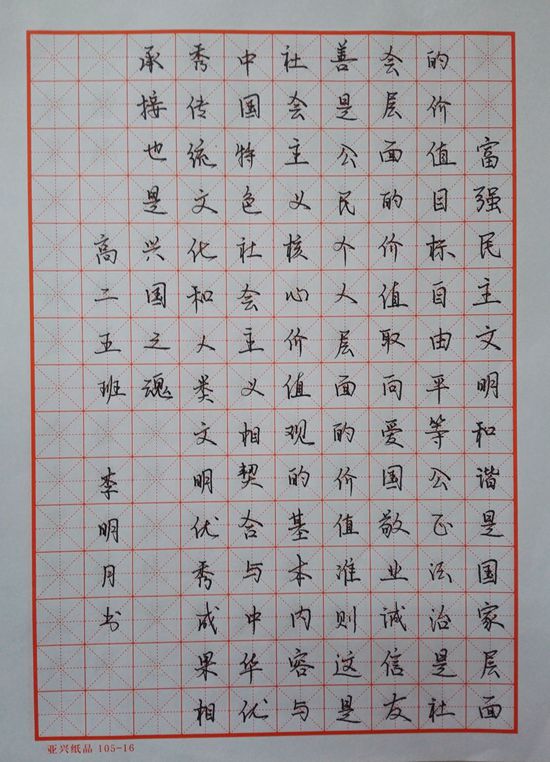 富强民主文明和谐是国家层面
的价值目标自由平等公正法治是社
会层面的价值取向爱国敬业诚信友
善是公民个人层面的价值准则这是
社会主义核心价值观的基本内容与
中国特色社会主义相契合与中华优
秀传统文化和人类文明优秀成果相
承接也是兴国之魂
高二五班 李明月书
亚兴纸品 105-16